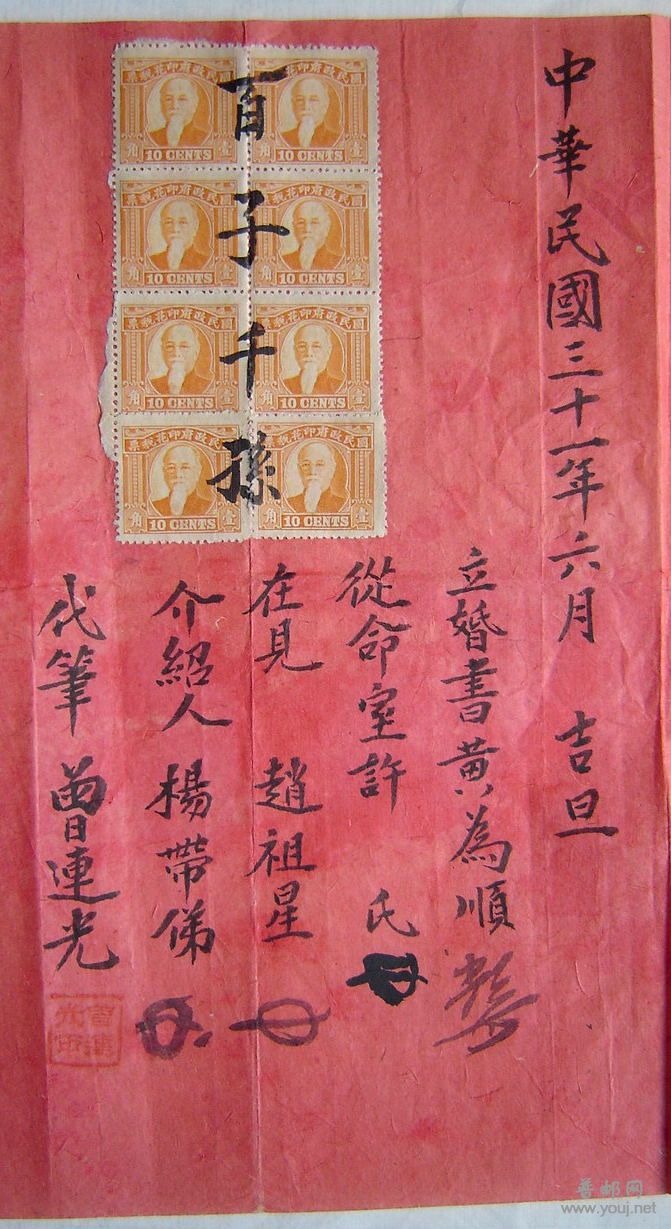 中華民國三十一年六月 吉旦
立婚書黃為順
從命室許 氏
在見 趙祖星
介紹人 楊帶俤
代筆 曾連光
曾連光印
百子千孫
國民政府印花稅票
壹角
10 CENTS
國民政府印花稅票
壹角
10 CENTS
國民政府印花稅票
壹角
10 CENTS
國民政府印花稅票
壹角
10 CENTS
國民政府印花稅票
壹角
10 CENTS
國民政府印花稅票
壹角
10 CENTS
國民政府印花稅票
壹角
10 CENTS
國民政府印花稅票
壹角
10 CENTS
普邮网
www.youj.net